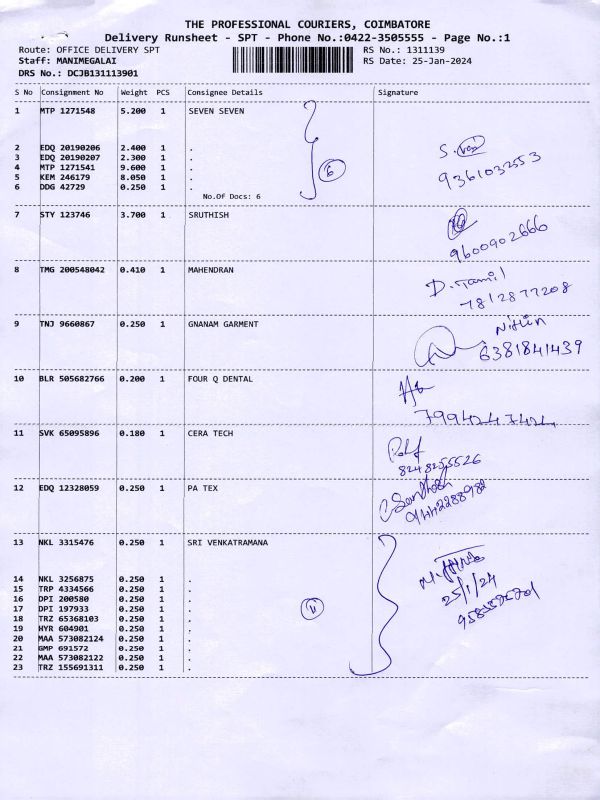 THE PROFESSIONAL COURIERS, COIMBATORE
Delivery Runsheet - SPT - Phone No.:0422-3505555 - Page No.:1
Route: OFFICE DELIVERY SPT RS No.: 1311139
Staff: MANIMEGALAI RS Date: 25-Jan-2024
DRS No.: DCJB131113901
S No Consignment No Weight PCS Consignee Details Signature
1 MTP 1271548 5.200 1 SEVEN SEVEN
2 EDQ 20190206 2.400 1 .
3 EDQ 20190207 2.300 1 .
4 MTP 1271541 9.600 1 .
5 KEM 246179 8.050 1 .
6 DDG 42729 0.250 1 .
No.Of Docs: 6
6
9361033553
7 STY 123746 3.700 1 SRUTHISH
9600902666
8 TMG 200548042 0.410 1 MAHENDRAN
D. Tamil
7812877208
9 TNJ 9660867 0.250 1 GNANAM GARMENT
Nithin
6381841439
10 BLR 505682766 0.200 1 FOUR Q DENTAL
11 SVK 65095896 0.180 1 CERA TECH
8248255526
12 EDQ 12328059 0.250 1 PA TEX
C. Santhosh
13 NKL 3315476 0.250 1 SRI VENKATRAMANA
14 NKL 3256875 0.250 1 .
15 TRP 4334566 0.250 1 .
16 DPI 200580 0.250 1 .
17 DPI 197933 0.250 1 .
18 TRZ 65368103 0.250 1 .
19 HYR 604901 0.250 1 .
20 MAA 573082124 0.250 1 .
21 GMP 691572 0.250 1 .
22 MAA 573082122 0.250 1 .
23 TRZ 155691311 0.250 1 .
11
25/1/24